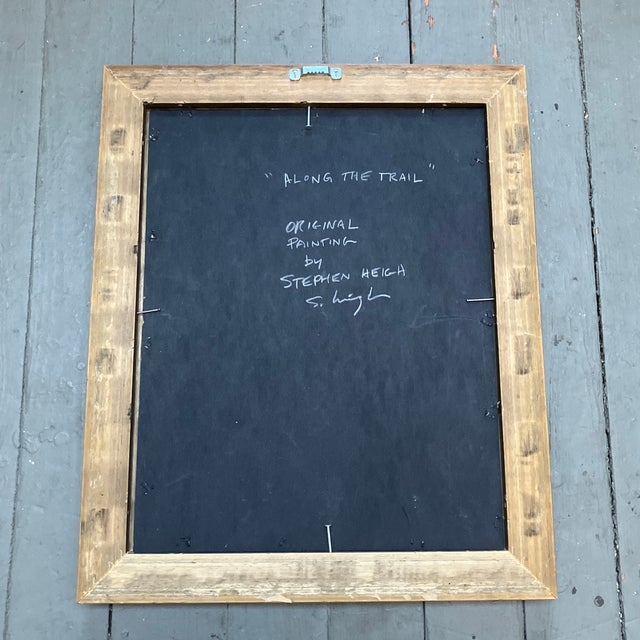 "ALONG THE TRAIL"
ORIGINAL
PAINTING
by
STEPHEN HEIGH
S. Heigh